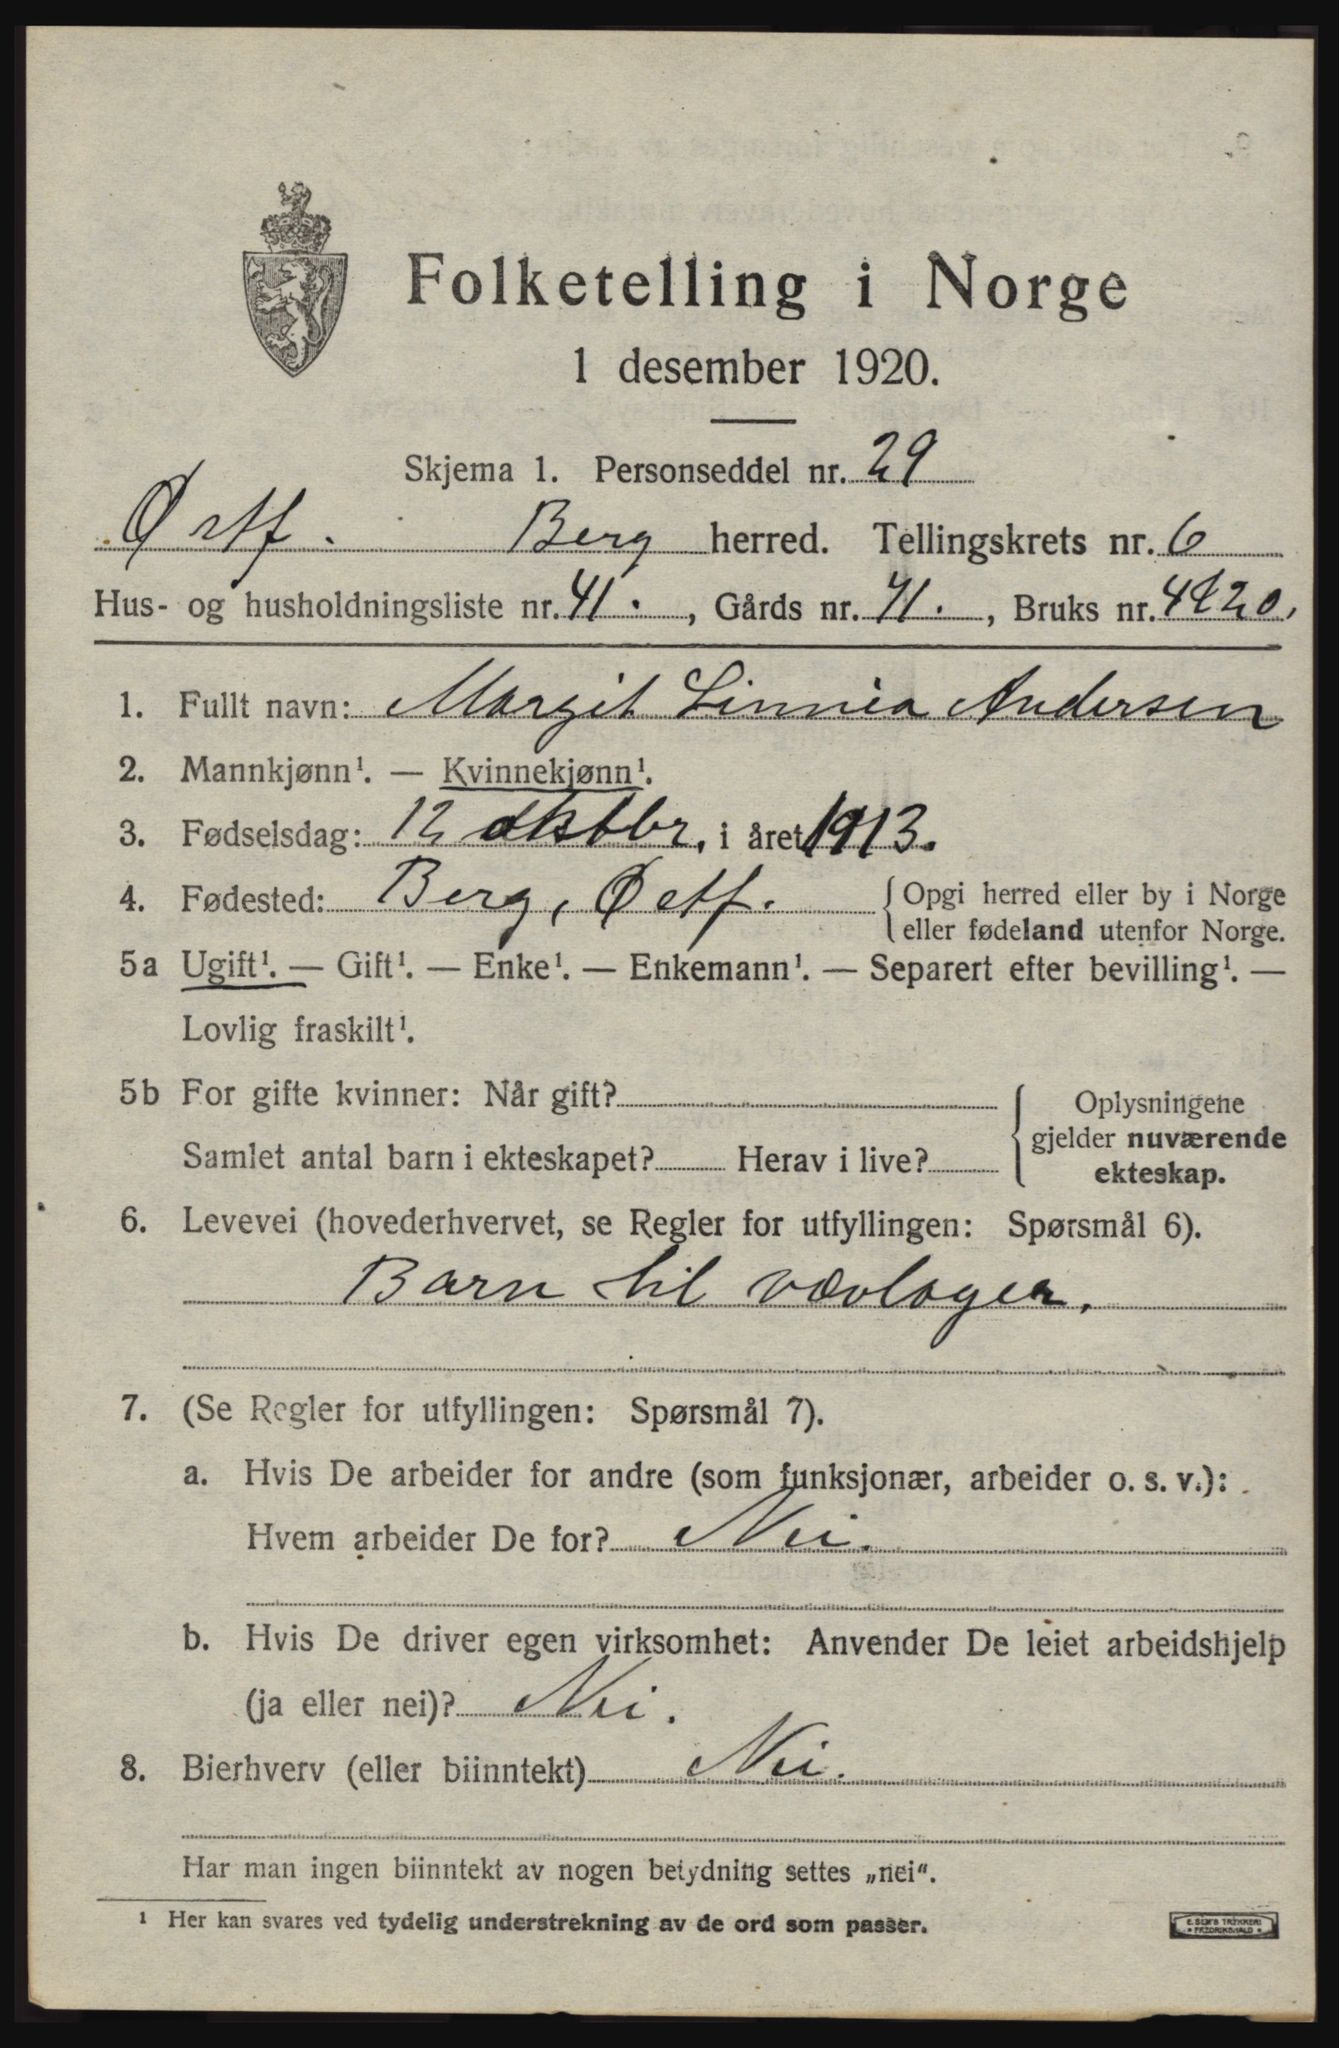 Folketelling i Norge
1 desember 1920.
Skjema 1. Personseddel nr. 29
Østf. Berg herred. Tellingskrets nr. 6
Hus- og husholdningsliste nr. 41. , Gårds nr. 41. , Bruks nr.
1. Fullt navn: Margit Linnia Andersen
2. Mannkjønn¹. — Kvinnekjønn¹.
3. Fødselsdag: 12 oktbr, i året 1913.
4. Fødested: Berg, Østf. { Opgi herred eller by i Norge
eller fødeland utenfor Norge.
5a Ugift¹. — Gift¹. — Enke¹. — Enkemann¹. — Separert efter bevilling¹. —
Lovlig fraskilt¹.
5b For gifte kvinner: Når gift? Oplysningene
gjelder nuværende
Samlet antal barn i ekteskapet? Herav i live?
ekteskap.
6. Levevei (hovederhvervet, se Regler for utfyllingen: Spørsmål 6).
Barn til
7. (Se Regler for utfyllingen: Spørsmål 7).
a. Hvis De arbeider for andre (som funksjonær, arbeider o. s. v.):
Hvem arbeider De for? Nei.
b. Hvis De driver egen virksomhet: Anvender De leiet arbeidshjelp
(ja eller nei)? Nei.
8. Bierhverv (eller biinntekt) Nei.
Har man ingen biinntekt av nogen betydning settes „nei“.
¹ Her kan svares ved tydelig understrekning av de ord som passer.
E. SEM'S TRYKKERI
FREDRIKSHALD